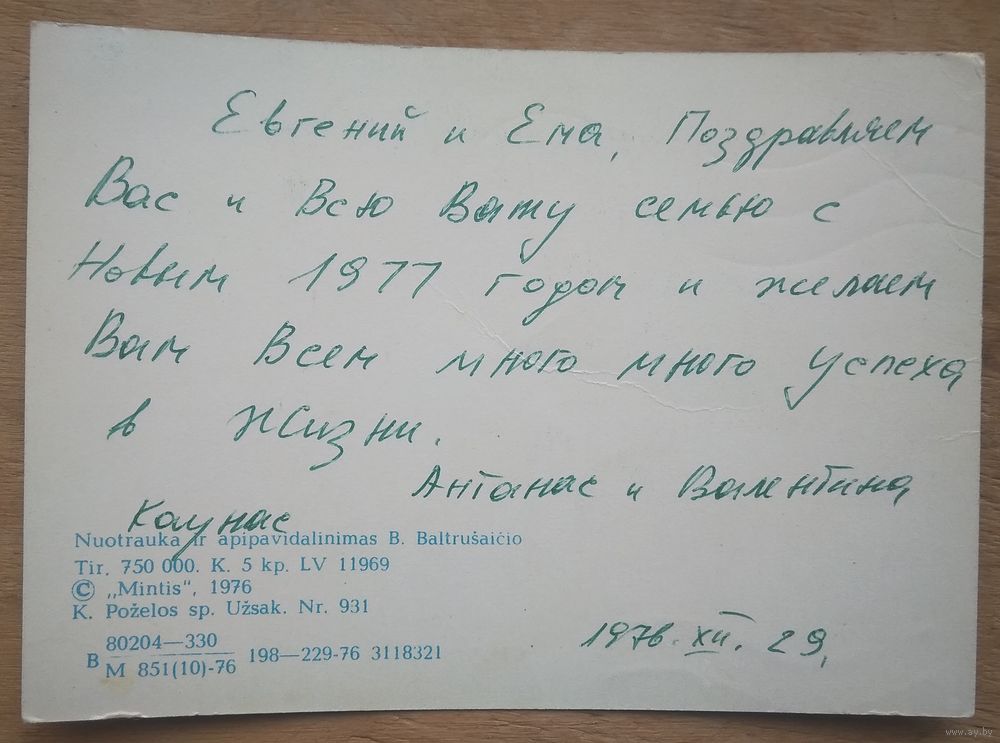 Евгений и Ема, Поздравляем
Вас и Всю Вашу семью с
Новым 1977 годом и желаем
Вам Всем много много успеха
в жизни.
Антанас и Валентина
Каунас
Nuotrauka ir apipavidalinimas B. Baltrušaičio
Tir. 750 000. K. 5 kp. LV 11969
© „Mintis“, 1976
K. Poželos sp. Užsak. Nr. 931
B 80204—330
M 851(10)-76 198—229-76 3118321
1976. XII. 29.
www.ay.by